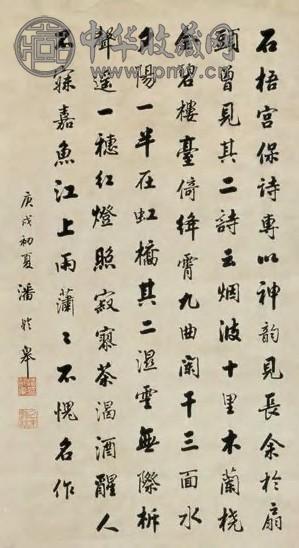 中华收藏网
石梧宫保詩專以神韵見長余於扇
頭曾見其二詩云烟波十里木蘭橈
金碧樓臺倚絳霄九曲闌干三面水
夕陽一半在虹橋其二濕雲無際柝
聲遥一穗紅燈照寂寥茶渴酒醒人
不寐嘉魚江上雨蕭〻不愧名作
庚戌初夏潘齡皋